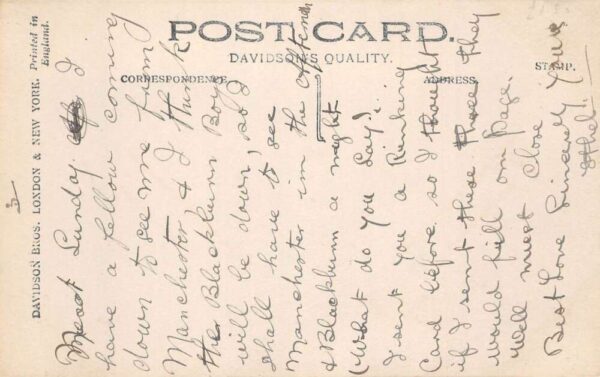 POST CARD.
DAVIDSON'S QUALITY.
CORRESPONDENCE
ADDRESS.
STAMP.
DAVIDSON BROS. LONDON & NEW YORK. Printed in England.
Next Sunday I
have a fellow coming
down to see me from
Manchester & I think
the Blackburn Boy
will be down, so I
shall have to see
Manchester in the Afternoon
& Blackburn a night
(What do you say)!
I sent you a Rinking
Card before so I thought
if I sent these they
would fill one page.
Well must close
Best Love Sincerely Yours
Ethel.